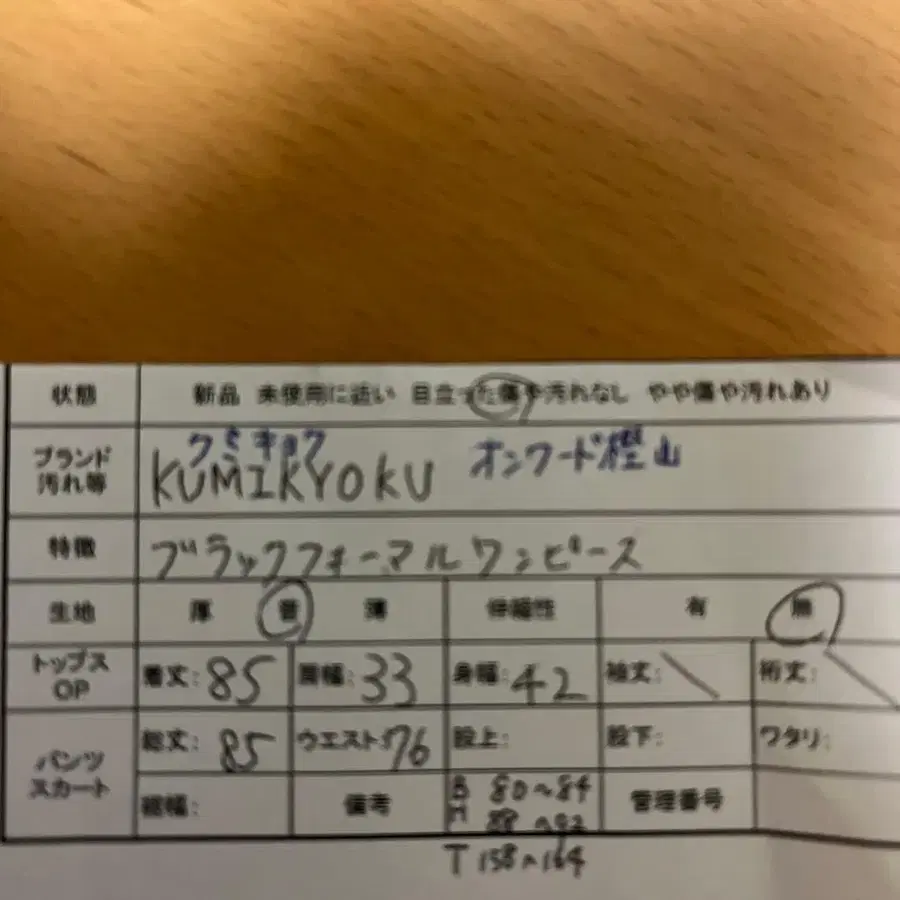 状態 新品 未使用に近い 目立った傷や汚れなし やや傷や汚れあり
クミキョク
ブランド汚れ等 KUMIKYOKU オンワード樫山
特徴 ブラックフォーマルワンピース
生地 厚 普 薄 伸縮性 有 無
トップス OP 着丈: 85 肩幅: 33 身幅: 42 袖丈: \ 裄丈: \
パンツ スカート 総丈: 85 ウエスト: 76 股上: 股下: ワタリ:
裾幅: 備考 B 80~84 管理番号
H 88~92
T 158~164